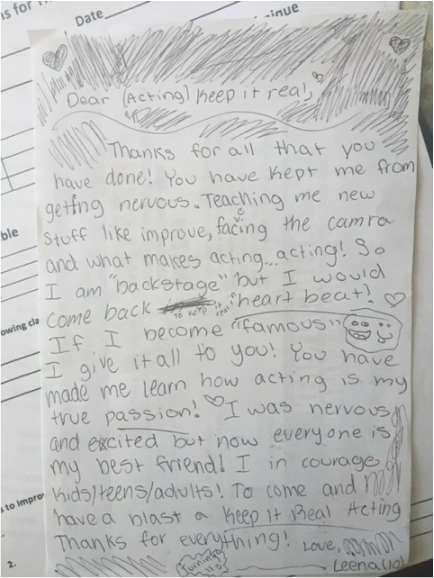 ns for
Date
inue
Dear (Acting) Keep it real,
Thanks for all that you
have done! You have kept me from
getting nervous. Teaching me new
stuff like improve, facing the camra
and what makes acting...acting! So
I am "backstage" but I would
come back to keep it real "heart beat!
If I become "famous"
I give it all to you! You have
made me learn how acting is my
true passion! I was nervous
and excited but now everyone is
my best friend! I in courage
Kids/teens/adults! To come and
have a blast a Keep it Real Acting
Thanks for everything! Love,
Turning
Leena(10)
ble
owing cla
s to Impro
2.